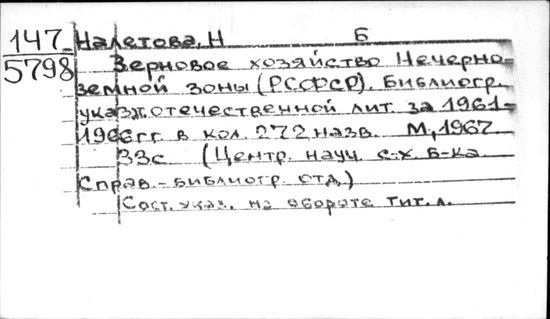 147 Налетова, Н Б
5798 Зерновое хозяйство Нечерно-
земной зоны (РСФСР). Библиогр.
указ. отечественной лит. за 1961-
1966 гг. в кол. 272 назв. М, 1967
33с (Центр. науч. с-х. б-ка
Справ.-библиогр. отд.)
Сост. указ. на обороте тит. л.